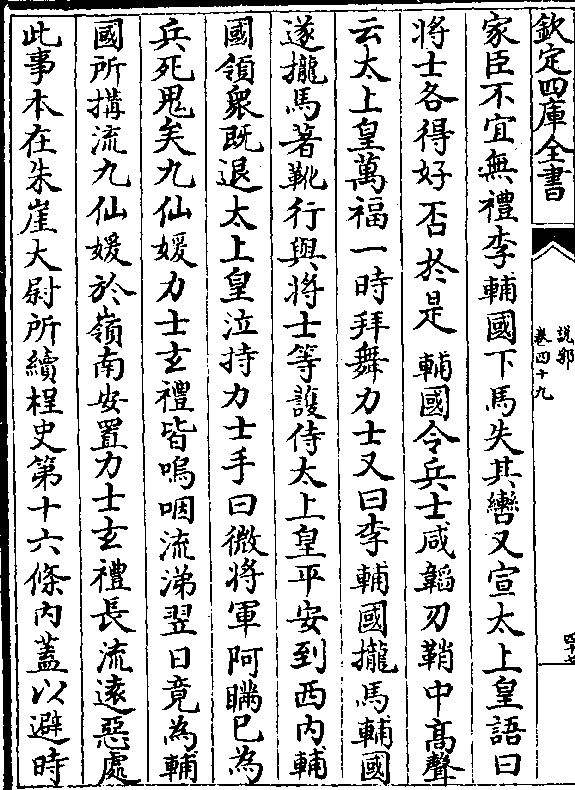 欽定四庫全書
說郛
卷四十九
家臣不宜無禮李輔國下馬失其轡又宣太上皇語曰
將士各得好否於是輔國令兵士咸韜刃鞘中高聲
云太上皇萬福一時拜舞力士又曰李輔國攏馬輔國
遂攏馬著靴行與將士等護侍太上皇平安到西内輔
國領衆既退太上皇泣持力士手曰微將軍阿瞞已為
兵死鬼矣九仙媛力士玄禮皆嗚咽流涕翌日竟為輔
國所搆流九仙媛於嶺南安置力士玄禮長流遠惡處
此事本在朱崖大尉所續桯史第十六條内蓋以避時